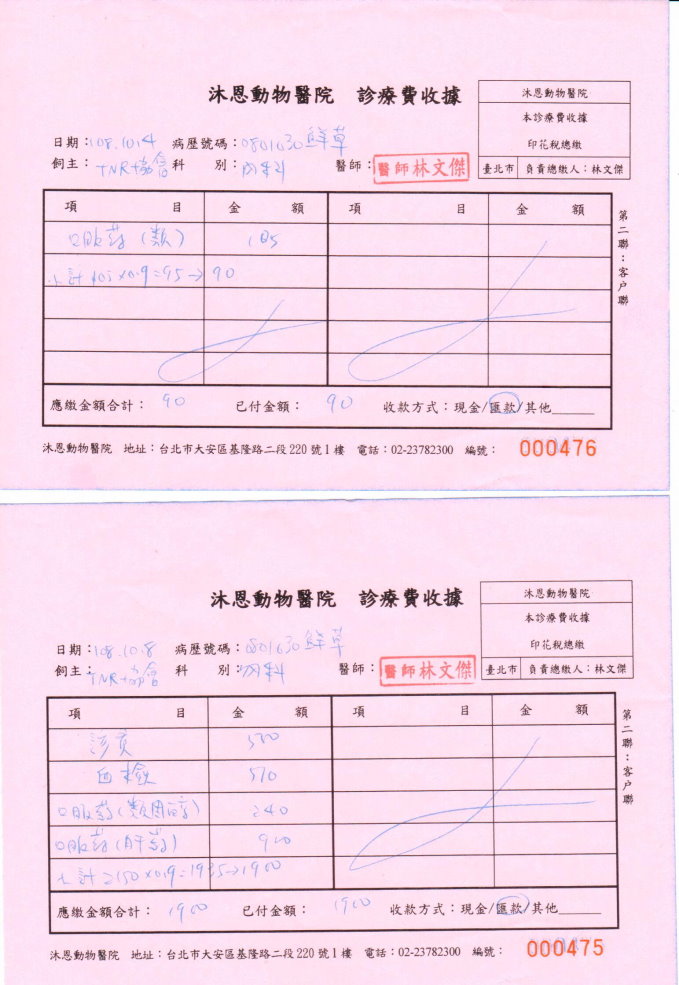 沐恩動物醫院 診療費收據
沐恩動物醫院
本診療費收據
印花稅總繳
臺北市 負責總繳人：林文傑
日期：108.10.4 病歷號碼：0801630 鮮草
飼主：TNR協會 科 別：內科 醫師：醫師林文傑
項 目 金 額 項 目 金 額
口服藥(類) 105
小計 105×0.9=95→90
應繳金額合計： 90 已付金額： 90 收款方式：現金/匯款/其他
第二聯：客戶聯
沐恩動物醫院 地址：台北市大安區基隆路二段220號1樓 電話：02-23782300 編號： 000476
沐恩動物醫院 診療費收據
沐恩動物醫院
本診療費收據
印花稅總繳
臺北市 負責總繳人：林文傑
日期：108.10.8 病歷號碼：0801630 鮮草
飼主：TNR協會 科 別：內科 醫師：醫師林文傑
項 目 金 額 項 目 金 額
診費 500
血檢 510
口服藥(類固醇) 240
口服藥(肝藥) 900
小計 2150×0.9=1935→1900
應繳金額合計： 1900 已付金額： 1900 收款方式：現金/匯款/其他
第二聯：客戶聯
沐恩動物醫院 地址：台北市大安區基隆路二段220號1樓 電話：02-23782300 編號： 000475